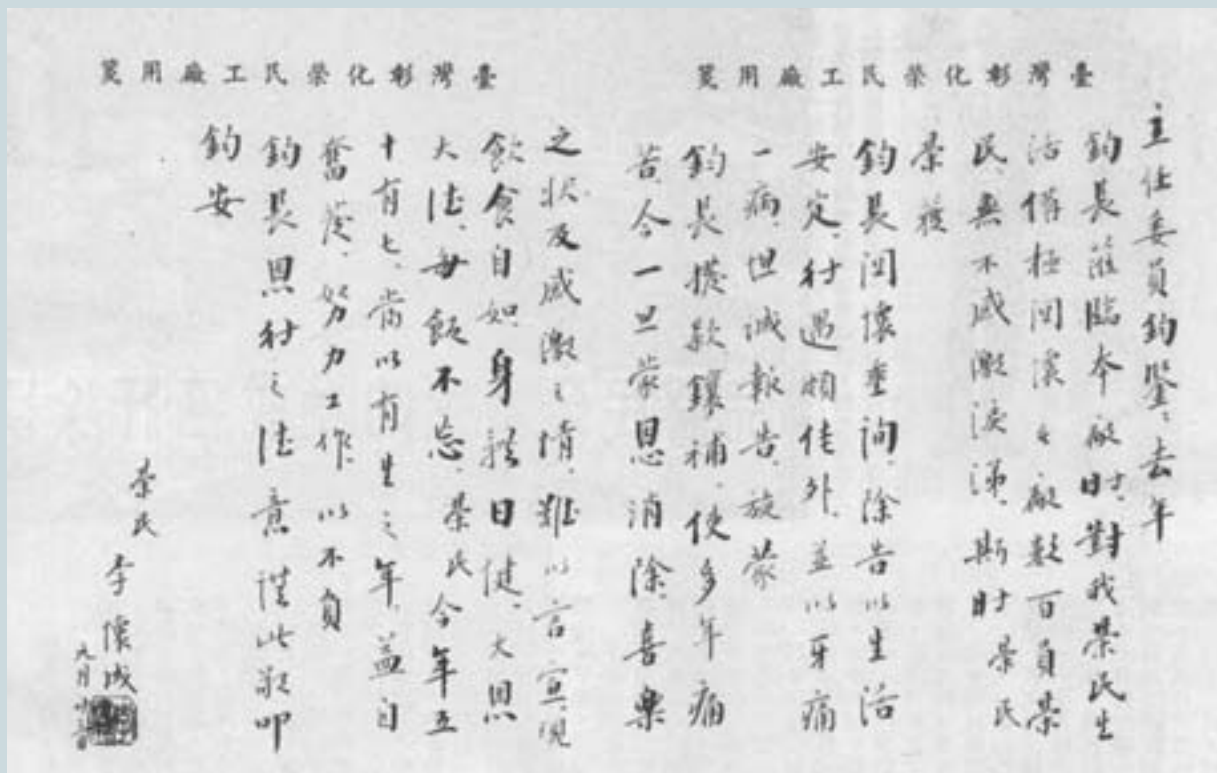 臺灣彰化榮民工廠用箋
主任委員鈞鑒、去年
鈞長蒞臨本廠时、對我榮民生
活備極関懷、全廠数百員榮
民、無不感激涕涕、斯时榮民
榮獲
鈞長関懷垂詢、除告以生活
安定、待遇頗佳外、並以牙痛
一病、坦誠報告、旋蒙
鈞長撥款鑲補、使多年痛
苦、今一旦蒙恩消除、喜樂
臺灣彰化榮民工廠用箋
之狀及感激之情、難以言宣、現
飲食自如、身體日健、大恩
大德、每飯不忘、榮民今年五
十有七、當以有生之年、益自
奮發、努力工作、以不負
鈞長恩待之德意 謹此敬叩
鈞安
榮民 李懷成
九月